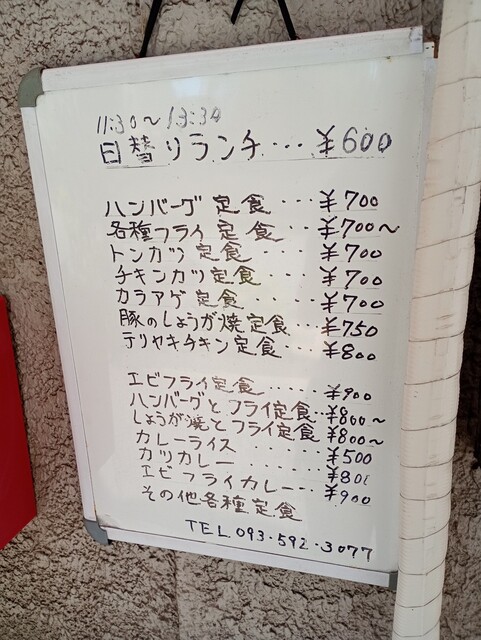 11:30〜13:30
日替リランチ…¥600
ハンバーグ定食…¥700
各種フライ定食…¥700〜
トンカツ定食……¥700
チキンカツ定食……¥700
カラアゲ定食……¥700
豚のしょうが焼定食…¥750
テリヤキチキン定食…¥800
エビフライ定食……¥900
ハンバーグとフライ定食…¥800〜
しょうが焼とフライ定食¥800〜
カレーライス……¥500
カツカレー……¥800
エビフライカレー…¥900
その他各種定食
TEL 093-592-3077